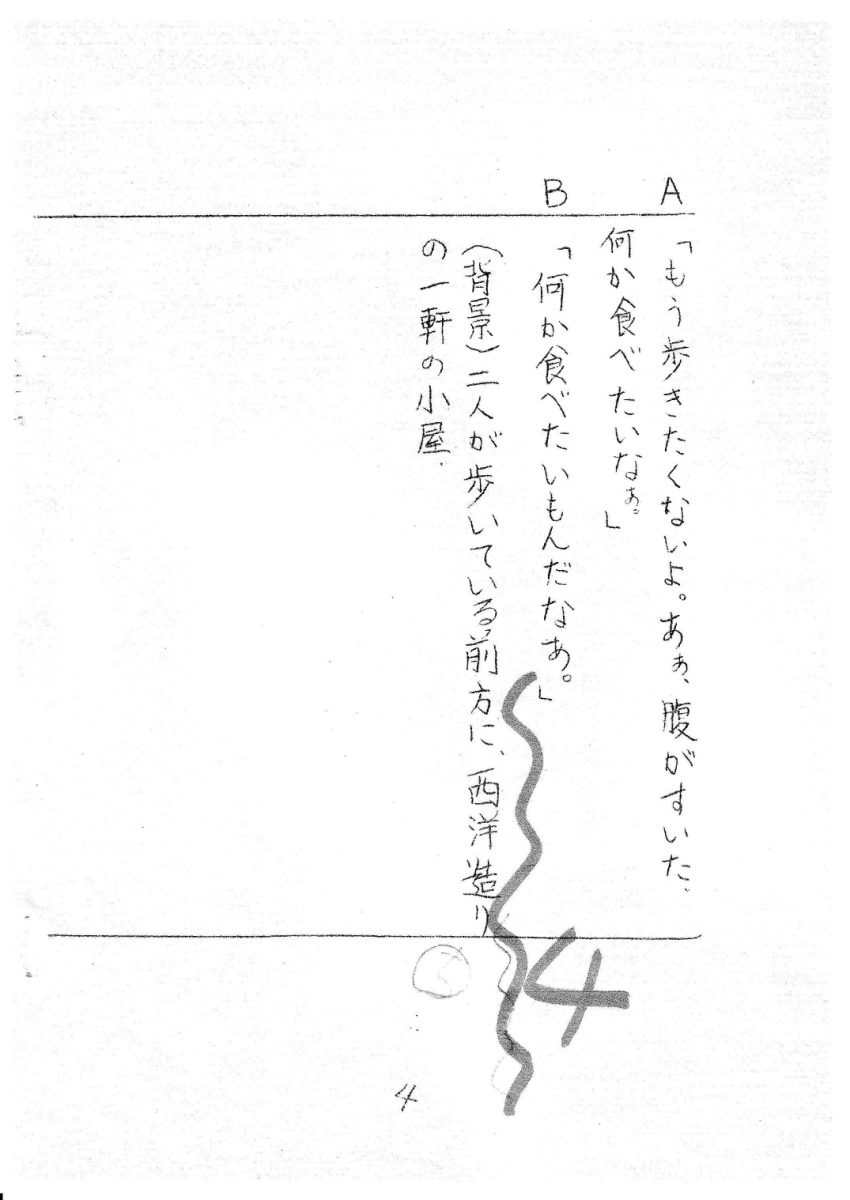 A「もう歩きたくないよ。あぁ、腹がすいた、
何か食べたいなぁ。」
B「何か食べたいもんだなあ。」
(背景)二人が歩いている前方に、西洋造り
の一軒の小屋.
4
4